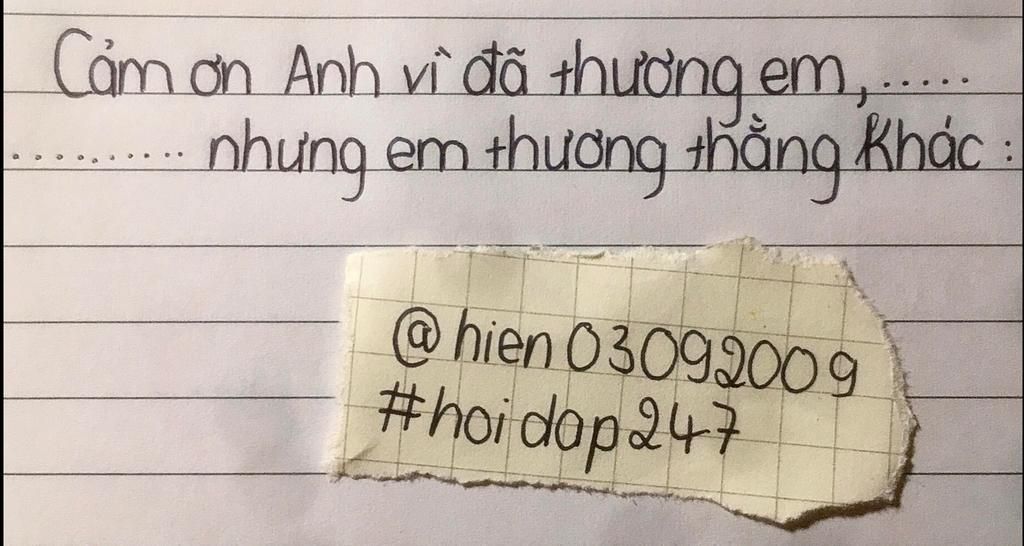 Cảm ơn Anh vì đã thương em,.....
.......... nhưng em thương thằng Khác :
@hien03092009
#hoidap247